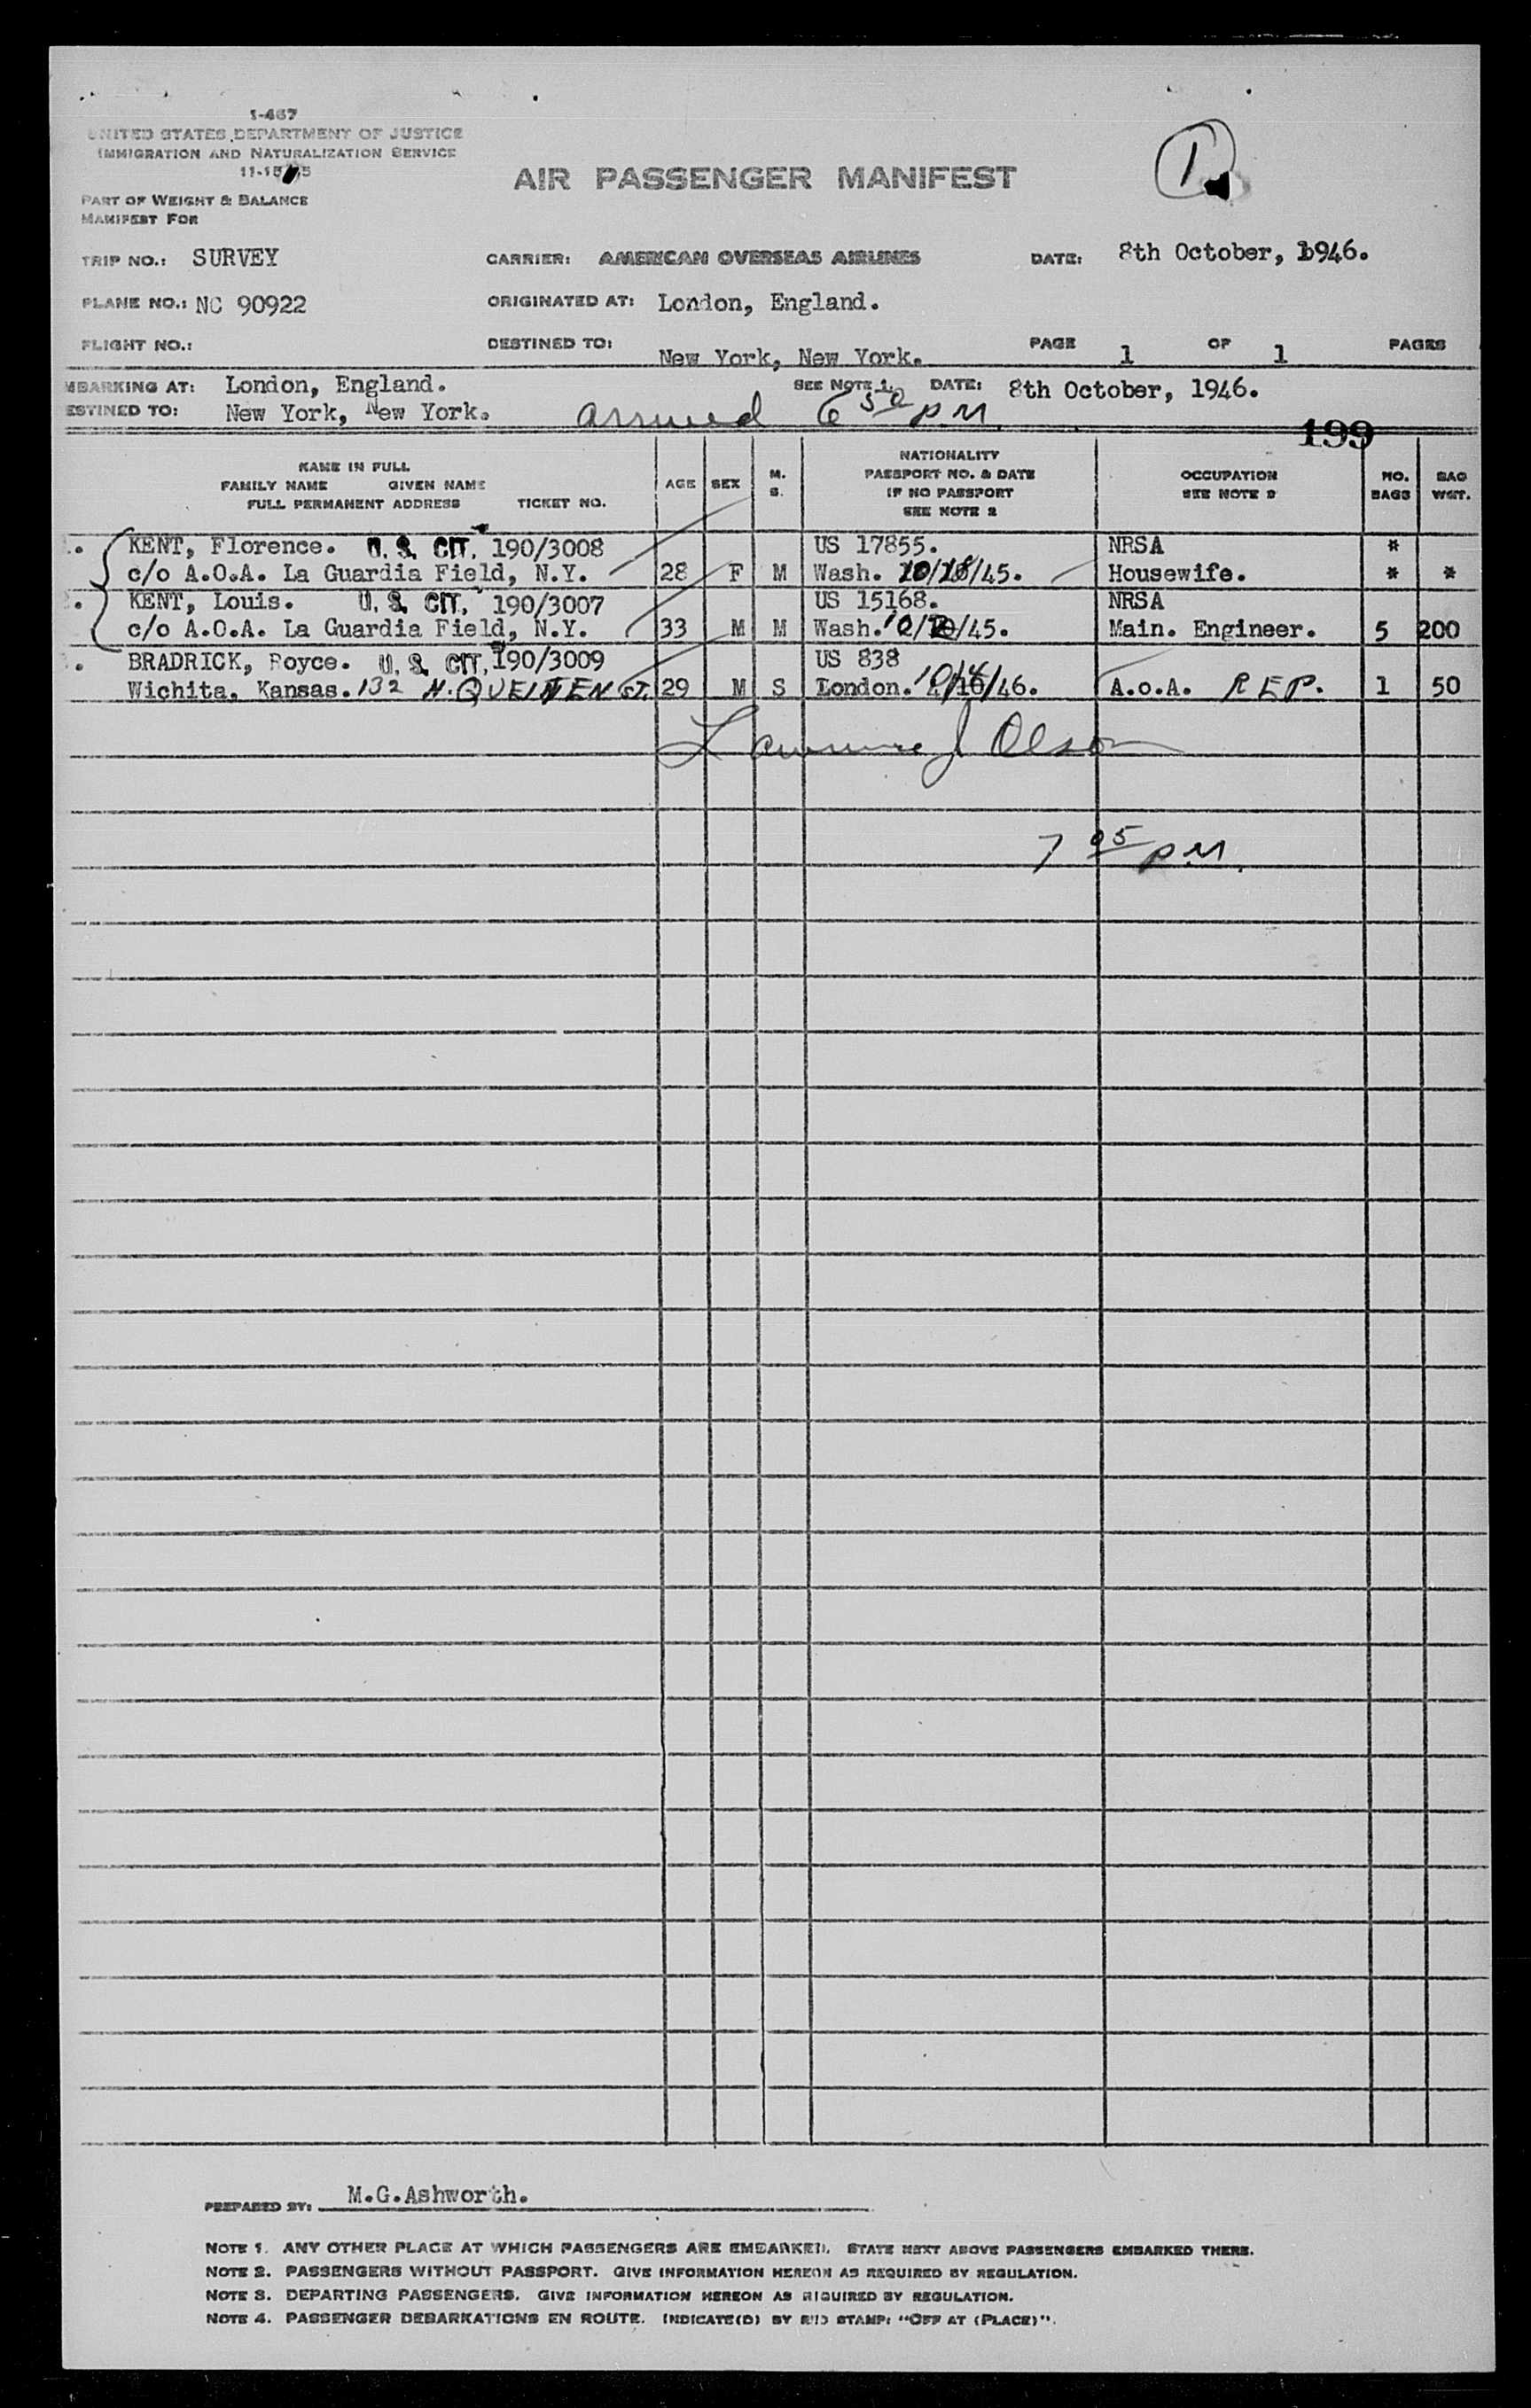 1-467
UNITED STATES DEPARTMENT OF JUSTICE
IMMIGRATION AND NATURALIZATION SERVICE
AIR PASSENGER MANIFEST
1
PART OF WEIGHT & BALANCE
MANIFEST FOR
TRIP NO.: SURVEY CARRIER: AMERICAN OVERSEAS AIRLINES DATE: 8th October, 1946.
PLANE NO.: NC 90922 ORIGINATED AT: London, England.
FLIGHT NO.: DESTINED TO: New York, New York. PAGE 1 OF 1 PAGES
MBARKING AT: London, England. SEE NOTE 1. DATE: 8th October, 1946.
ESTINED TO: New York, New York. arrived 6 50 PM
199
NAME IN FULL
FAMILY NAME GIVEN NAME
FULL PERMANENT ADDRESS TICKET NO.
AGE SEX M. S.
NATIONALITY
PASSPORT NO. & DATE
IF NO PASSPORT
SEE NOTE 2
OCCUPATION
SEE NOTE 3
NO. BAGS
BAG WGT.
KENT, Florence. U. S. CIT. 190/3008 US 17855. NRSA *
c/o A.O.A. La Guardia Field, N.Y. 28 F M Wash. /45. Housewife. * *
KENT, Louis. U. S. CIT. 190/3007 US 15168. NRSA
c/o A.O.A. La Guardia Field, N.Y. 33 M M Wash. /45. Main. Engineer. 5 200
BRADRICK, Royce. U. S. CIT. 190/3009 US 838
Wichita, Kansas. 132 N. QUEINTEN ST. 29 M S London. /46. A.o.A. REP. 1 50
Lawrence J Olson
7 05 PM.
PREPARED BY: M.G.Ashworth.
NOTE 1. ANY OTHER PLACE AT WHICH PASSENGERS ARE EMBARKED. STATE NEXT ABOVE PASSENGERS EMBARKED THERE.
NOTE 2. PASSENGERS WITHOUT PASSPORT. GIVE INFORMATION HEREON AS REQUIRED BY REGULATION.
NOTE 3. DEPARTING PASSENGERS. GIVE INFORMATION HEREON AS RIQUIRED BY REGULATION.
NOTE 4. PASSENGER DEBARKATIONS EN ROUTE. INDICATE(D) BY STAMP: "OFF AT (PLACE)".